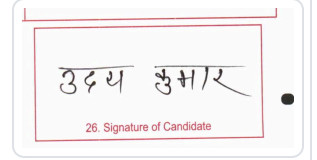 उदय कुमार
26. Signature of Candidate